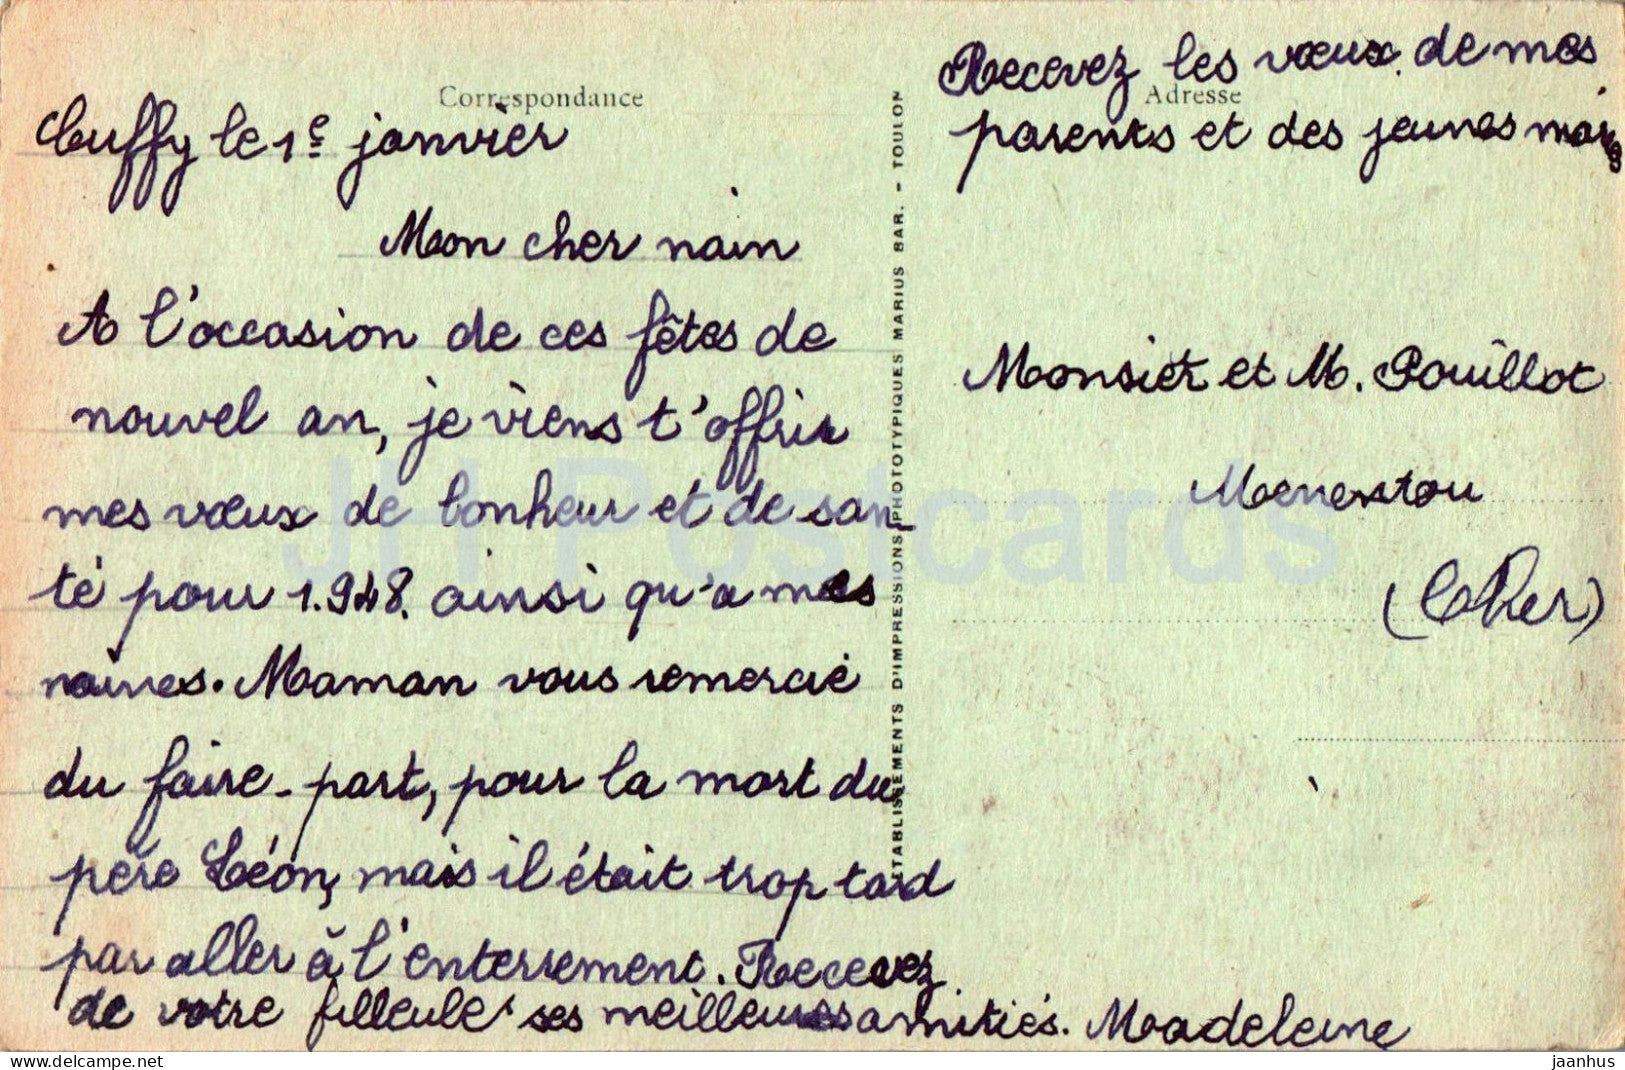 Correspondance
Cuffy le 1er janvier
Mon cher nain
A l'occasion de ces fêtes de
nouvel an, je viens t'offrir
mes vœux de bonheur et de san-
té pour 1.948. ainsi qu'a mes
naines. Maman vous remercie
du faire-part, pour la mort du
père Léon, mais il était trop tard
par aller à l'enterrement. Recevez
de votre filleule ses meilleures amitiés. Madeleine
ETABLISSEMENTS D'IMPRESSIONS PHOTOTYPIQUES MARIUS BAR. - TOULON
Recevez les vœux de mes
Adresse
parents et des jeunes mariés
Monsier et M. Pouillot
Menestou
(Cher)
JH Postcards
delcampe.net
jaanhus